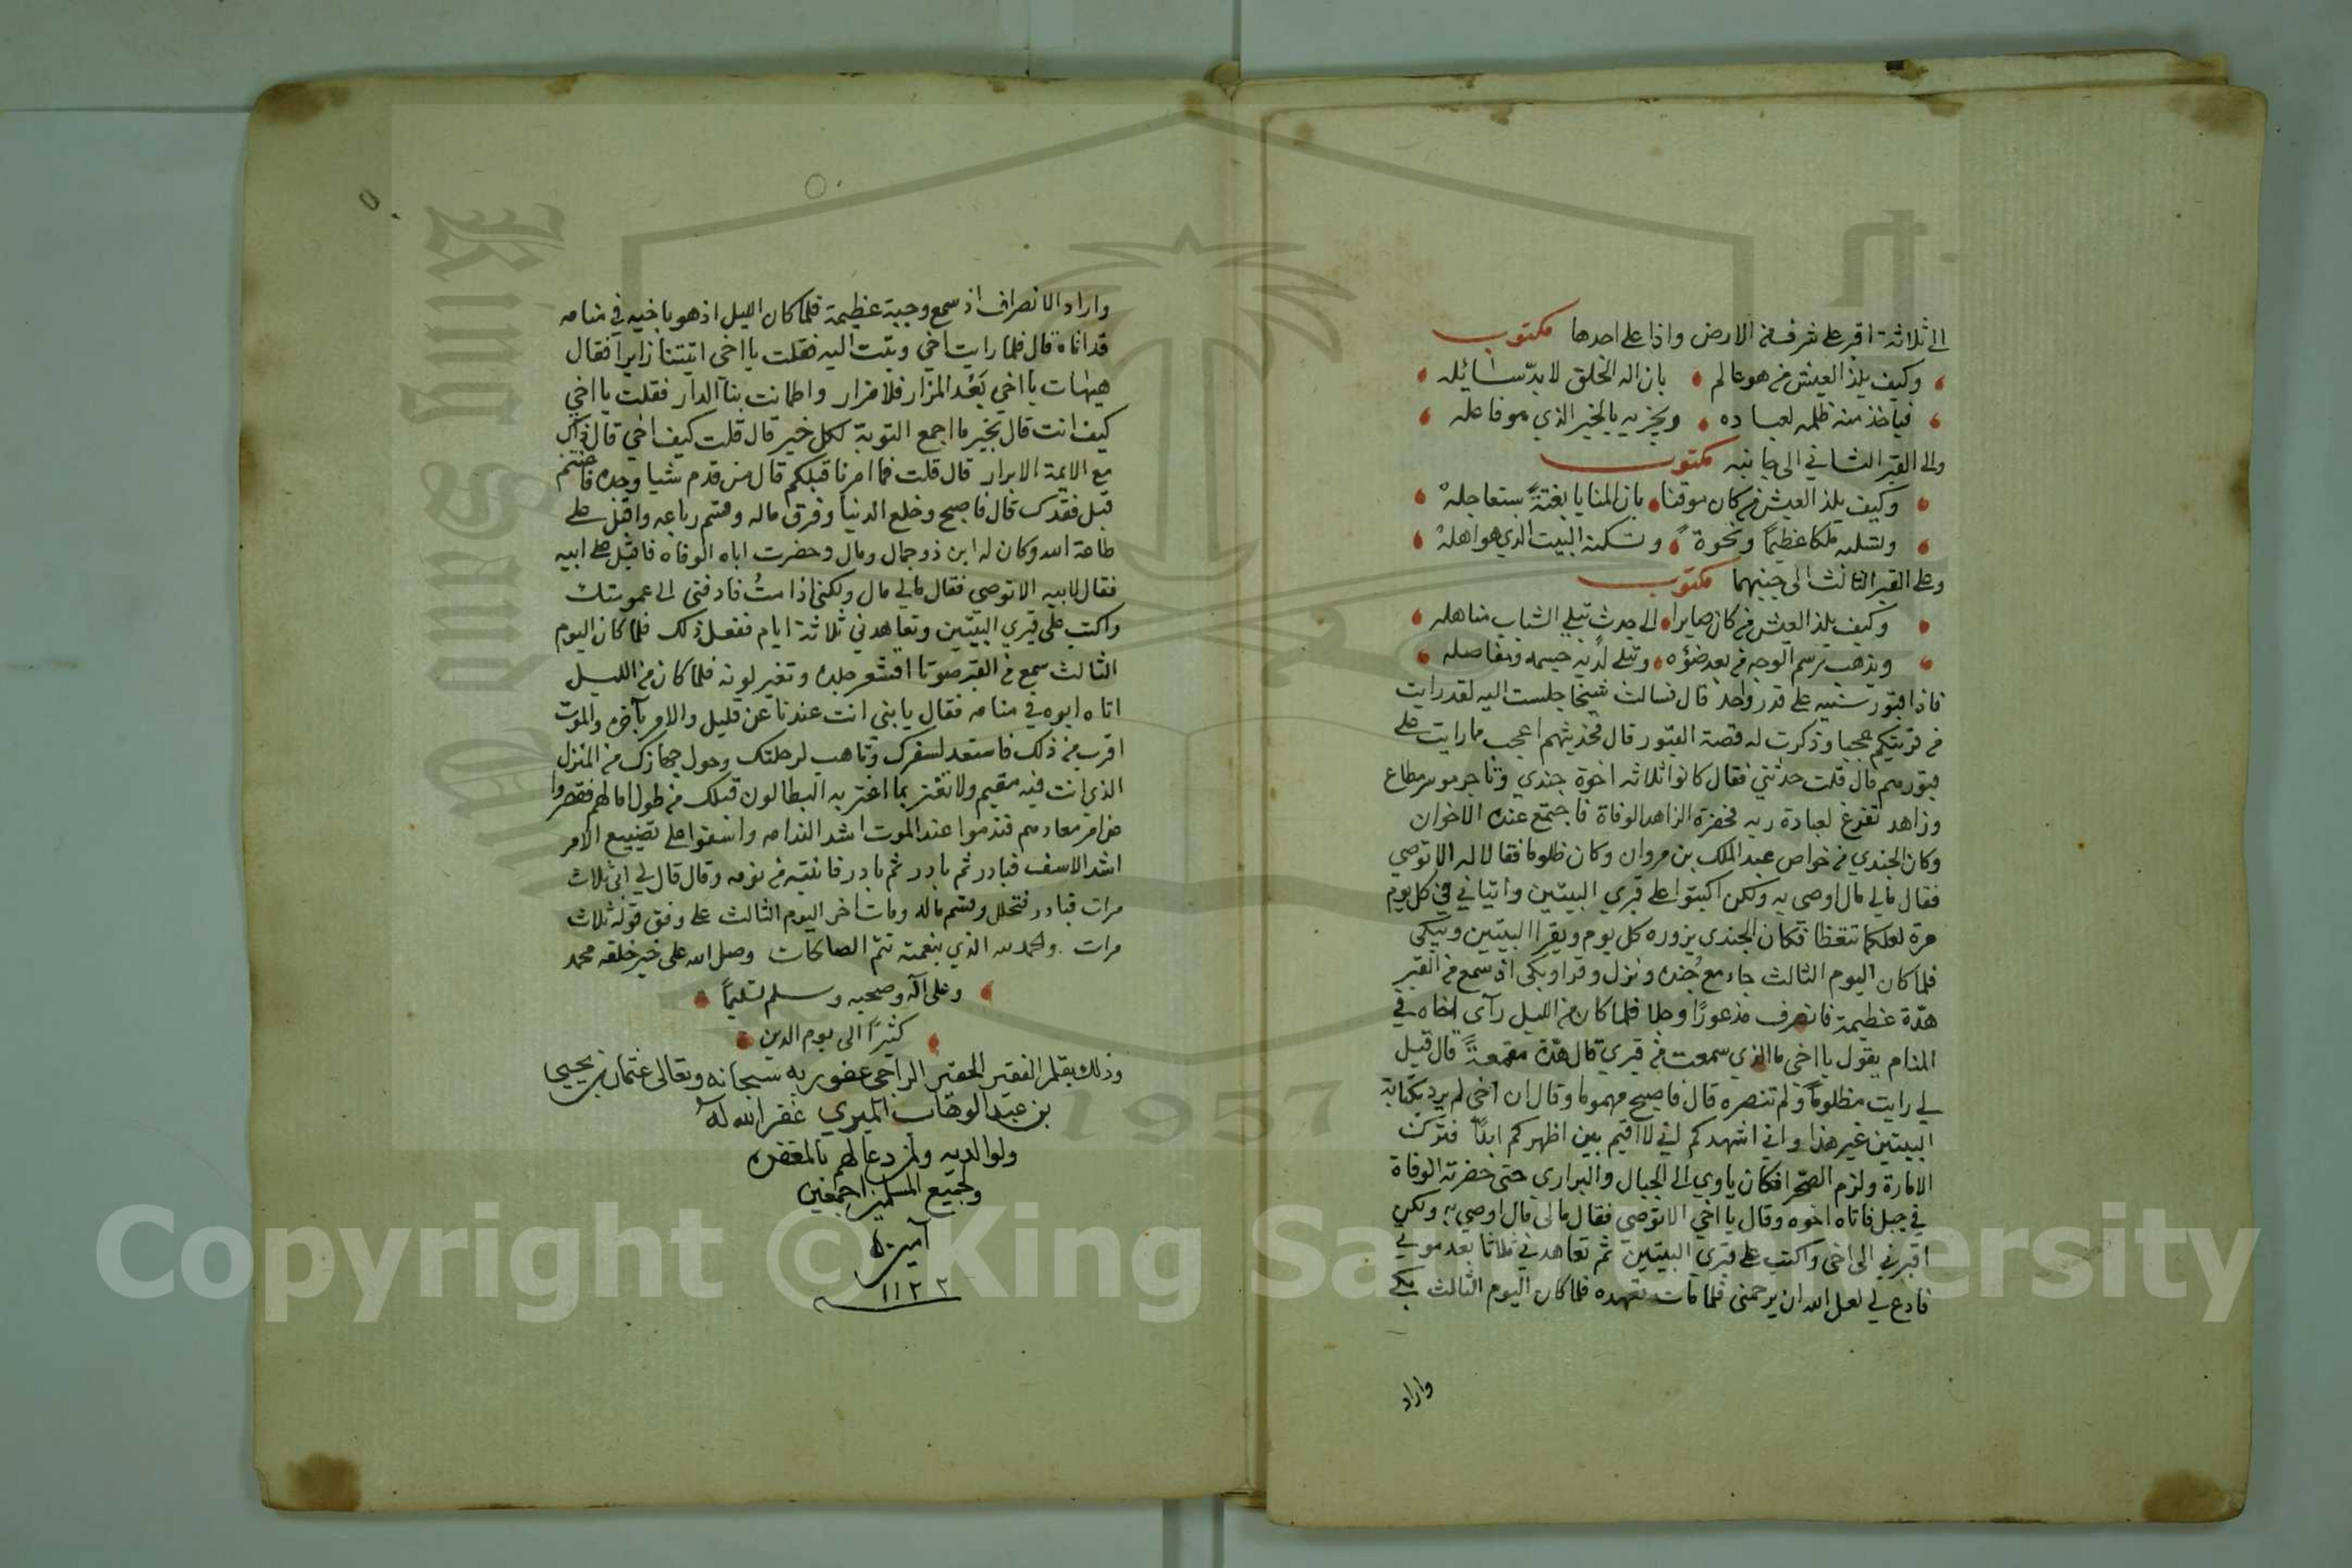 الى ثلاثة اقبر على شرف من الارض واذا على احدها مكتوب
وكيف يلذ العيش من هو عالم بان اله الخلق لا بد سائله
فياخذ منه ظلمه لعباده ويجزيه بالخير الذي هو فاعله
والى القبر الثاني الى جانبه مكتوب
وكيف يلذ العيش من كان موقنا بان المنايا بغتةً ستعاجله
وتسلبه ملكا عظيمًا ونخوةً وتسكنه البيت الذي هو اهله
وعلى القبر الثالث الى جنبهما مكتوب
وكيف يلذ العيش من كان صايرا الى جدث تبلي الشباب مناهله
ويذهب رسم الوجه من بعد ضوئه وتبلى لديه جسمه ومفاصله
فاذا قبور شبيه على قدر واحد قال فسالت شيخا جلست اليه لقد رايت
في قريتكم عجبا وذكرت له قصة القبور قال فحديثهم اعجب مما رايت على
قبورهم قال قلت حدثني فقال كانوا ثلاثه اخوة جندي وتاجر موسر مطاع
وزاهد تفرغ لعبادة ربه فحضرة الزاهد الوفاة فاجتمع عنده الاخوان
وكان الجندي من خواص عبد الملك بن مروان وكان ظلوما فقالا له الا توصي
فقال مالي مال اوصي به ولكن اكتبوا على قبري البيتين واتياني في كل يوم
مرة لعلكما تتعظا فكان الجندي يزوره كل يوم ويقرا البيتين ويبكي
فلما كان اليوم الثالث جاء مع جنده ونزل وقرا وبكى اذ سمع من القبر
هدّة عظيمة فانصرف مذعورًا وجلا فلما كان من الليل رآى اخاه في
المنام يقول يا اخي ما الذي سمعت من قبري قال هدة مقمعةً قال قيل
لي رايت مظلوماً ولم تنصره قال فاصبح مهموما وقال ان اخي لم يرد بكتابة
البيتين غير هذا واني اشهدكم اني لا اقيم بين اظهركم ابدًا فترك
الامارة ولزم الصحرا فكان ياوي الى الجبال والبراري حتى حضرته الوفاة
في جبل فاتاه اخوه وقال يا اخي الا توصي فقال مالي مال اوصي به ولكن
اقبرني الى اخي واكتب على قبري البيتين ثم تعاهدني ثلاثا بعد موتي
فادع لي لعل الله ان يرحمني فلما مات تعهده فلما كان اليوم الثالث بكى
واراد
واراد الانصراف اذ سمع وجبة عظيمة فلما كان الليل اذ هو باخيه في منامه
قد اتاه قال فلما رايت اخي وثبت اليه فقلت يا اخي اتيتنا زايرا فقال
هيهات يا اخي بَعُد المزار فلا مزار واطمانت بنا الدار فقلت يا اخي
كيف انت قال بخير ما اجمع التوبة لكل خير قال قلت كيف اخي قال ذاك
مع الايمة الابرار قال قلت فما امرنا قبلكم قال من قدم شيا وجده فاغتنم
قبل فقدك قال فاصبح وخلع الدنيا وفرق ماله وقسم رباعه واقبل على
طاعة الله وكان له ابن ذو جمال ومال وحضرت اباه الوفاه فاقبل على ابيه
فقال لابيه الا توصي فقال مالي مال ولكن اذا متُ فادفني الى عمومتك
واكتب على قبري البيتين وتعاهدني ثلاثة ايام ففعل ذلك فلما كان اليوم
الثالث سمع من القبر صوتا اقشعر جلده وتغير لونه فلما كان من الليل
اتاه ابوه في منامه فقال يا بني انت عندنا عن قليل والامر بآخره والموت
اقرب من ذلك فاستعد لسفرك وتاهب لرحلتك وحول جهازك من المنزل
الذي انت فيه مقيم ولا تغتر بما اغتر به البطالون قبلك من طول امالهم فقصروا
عن امر معادهم فندموا عند الموت اشد الندامه واسفوا على تضييع الامر
اشد الاسف فبادر ثم بادر ثم بادر فانتبه من نومه وقال قال لي ابي ثلاث
مرات فبادر فتحلل وقسم ماله ومات اخر اليوم الثالث على وفق قوله ثلاث
مرات والحمد لله الذي بنعمته تتم الصالحات وصلى الله على خير خلقه محمد
وعلى آله وصحبه وسلم تسليماً
كثيرًا الى يوم الدين
وذلك بقلم الفقير الحقير الراجي عفو ربه سبحانه وتعالى عثمان بن يحيى
بن عبد الوهاب الميري غفر الله له
ولوالديه ولمن دعا لهم بالمغفره
ولجميع المسلمين اجمعين
آمين
١١٢٢
1957
Copyright © King Saud University